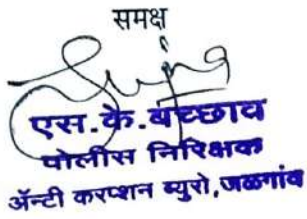 समक्ष
एस.के.बच्छाव
पोलीस निरिक्षक
ॲन्टी करप्शन ब्युरो,जळगांव